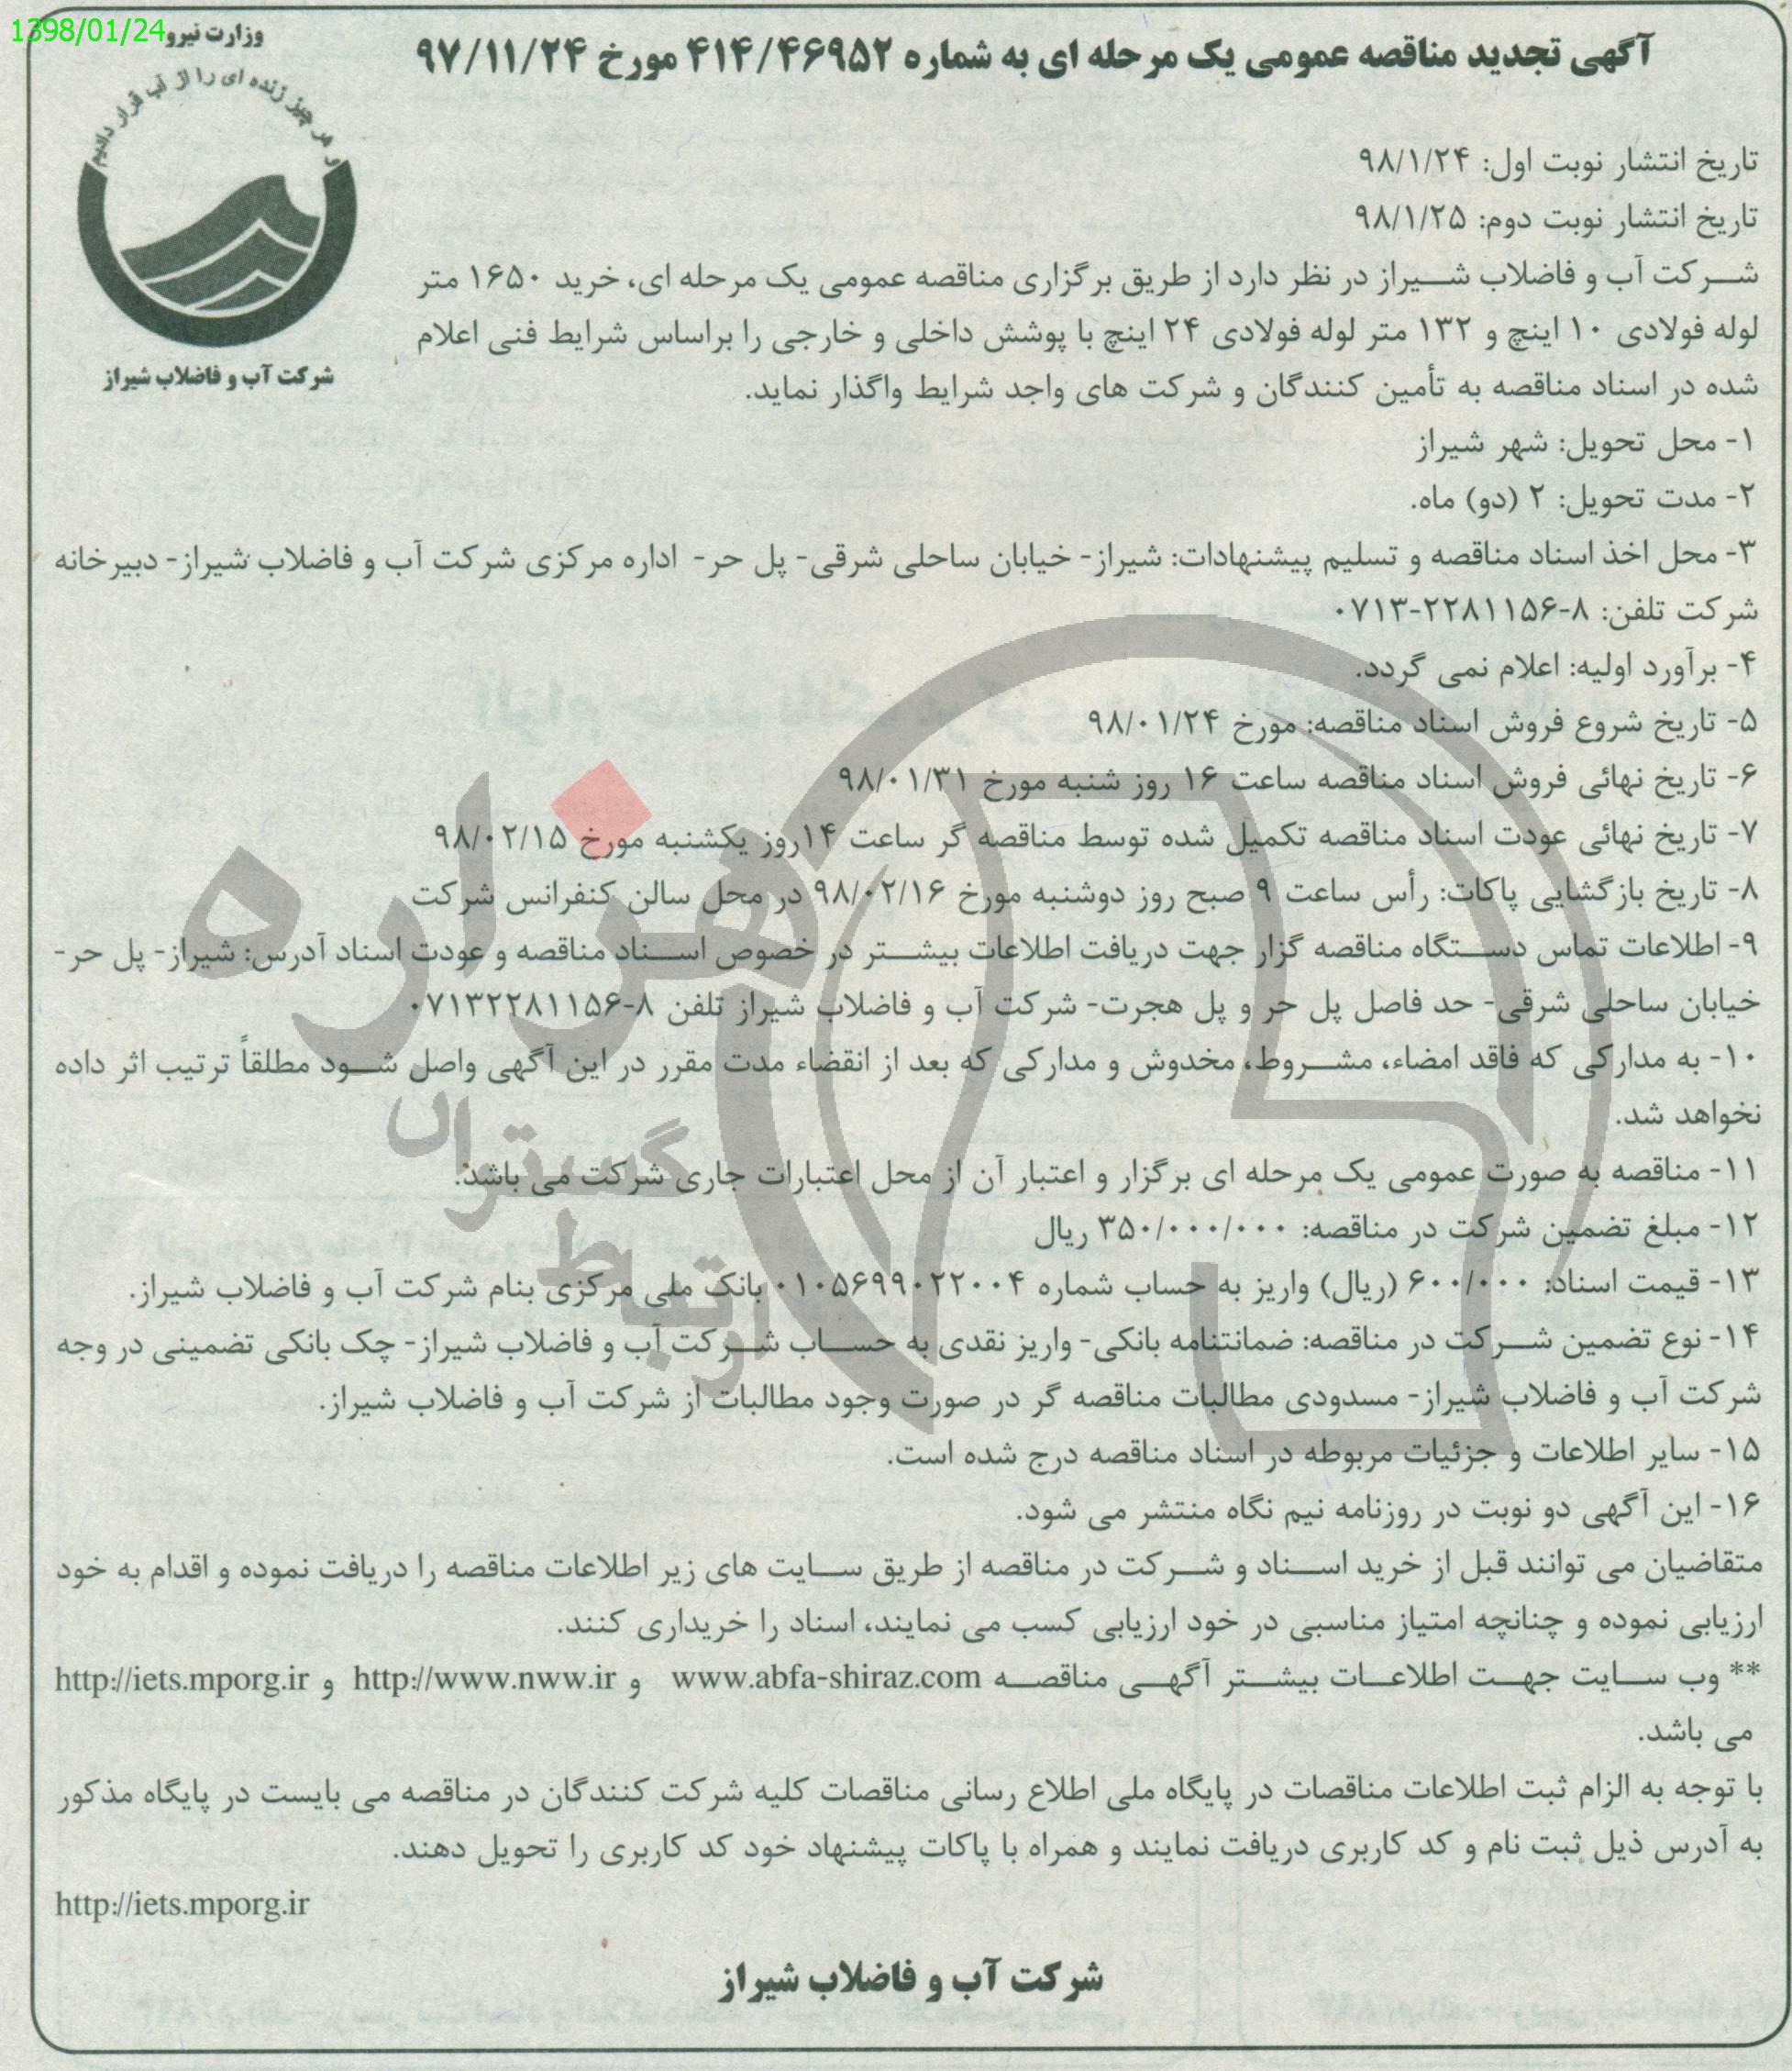 1398/01/24
وزارت نیرو
و هر چیز زنده ای را از آب قرار دادیم
شرکت آب و فاضلاب شیراز
آگهی تجدید مناقصه عمومی یک مرحله ای به شماره ۴۱۴/۴۶۹۵۲ مورخ ۹۷/۱۱/۲۴
تاریخ انتشار نوبت اول: ۹۸/۱/۲۴
تاریخ انتشار نوبت دوم: ۹۸/۱/۲۵
شرکت آب و فاضلاب شیراز در نظر دارد از طریق برگزاری مناقصه عمومی یک مرحله ای، خرید ۱۶۵۰ متر
لوله فولادی ۱۰ اینچ و ۱۳۲ متر لوله فولادی ۲۴ اینچ با پوشش داخلی و خارجی را براساس شرایط فنی اعلام
شده در اسناد مناقصه به تأمین کنندگان و شرکت های واجد شرایط واگذار نماید.
۱- محل تحویل: شهر شیراز
۲- مدت تحویل: ۲ (دو) ماه.
۳- محل اخذ اسناد مناقصه و تسلیم پیشنهادات: شیراز- خیابان ساحلی شرقی- پل حر- اداره مرکزی شرکت آب و فاضلاب شیراز- دبیرخانه
شرکت تلفن: ۸-۰۷۱۳-۲۲۸۱۱۵۶
۴- برآورد اولیه: اعلام نمی گردد.
۵- تاریخ شروع فروش اسناد مناقصه: مورخ ۹۸/۰۱/۲۴
۶- تاریخ نهائی فروش اسناد مناقصه ساعت ۱۶ روز شنبه مورخ ۹۸/۰۱/۳۱
۷- تاریخ نهائی عودت اسناد مناقصه تکمیل شده توسط مناقصه گر ساعت ۱۴روز یکشنبه مورخ ۹۸/۰۲/۱۵
۸- تاریخ بازگشایی پاکات: رأس ساعت ۹ صبح روز دوشنبه مورخ ۹۸/۰۲/۱۶ در محل سالن کنفرانس شرکت
۹- اطلاعات تماس دستگاه مناقصه گزار جهت دریافت اطلاعات بیشتر در خصوص اسناد مناقصه و عودت اسناد آدرس: شیراز- پل حر-
خیابان ساحلی شرقی- حد فاصل پل حر و پل هجرت- شرکت آب و فاضلاب شیراز تلفن ۸-۰۷۱۳۲۲۸۱۱۵۶
۱۰- به مدارکی که فاقد امضاء، مشروط، مخدوش و مدارکی که بعد از انقضاء مدت مقرر در این آگهی واصل شود مطلقاً ترتیب اثر داده
نخواهد شد.
۱۱- مناقصه به صورت عمومی یک مرحله ای برگزار و اعتبار آن از محل اعتبارات جاری شرکت می باشد.
۱۲- مبلغ تضمین شرکت در مناقصه: ۳۵۰/۰۰۰/۰۰۰ ریال
۱۳- قیمت اسناد: ۶۰۰/۰۰۰ (ریال) واریز به حساب شماره ۰۱۰۵۶۹۹۰۲۲۰۰۴ بانک ملی مرکزی بنام شرکت آب و فاضلاب شیراز.
۱۴- نوع تضمین شرکت در مناقصه: ضمانتنامه بانکی- واریز نقدی به حساب شرکت آب و فاضلاب شیراز- چک بانکی تضمینی در وجه
شرکت آب و فاضلاب شیراز- مسدودی مطالبات مناقصه گر در صورت وجود مطالبات از شرکت آب و فاضلاب شیراز.
۱۵- سایر اطلاعات و جزئیات مربوطه در اسناد مناقصه درج شده است.
۱۶- این آگهی دو نوبت در روزنامه نیم نگاه منتشر می شود.
متقاضیان می توانند قبل از خرید اسناد و شرکت در مناقصه از طریق سایت های زیر اطلاعات مناقصه را دریافت نموده و اقدام به خود
ارزیابی نموده و چنانچه امتیاز مناسبی در خود ارزیابی کسب می نمایند، اسناد را خریداری کنند.
** وب سایت جهت اطلاعات بیشتر آگهی مناقصه www.abfa-shiraz.com و http://www.nww.ir و http://iets.mporg.ir
می باشد.
با توجه به الزام ثبت اطلاعات مناقصات در پایگاه ملی اطلاع رسانی مناقصات کلیه شرکت کنندگان در مناقصه می بایست در پایگاه مذکور
به آدرس ذیل ثبت نام و کد کاربری دریافت نمایند و همراه با پاکات پیشنهاد خود کد کاربری را تحویل دهند.
http://iets.mporg.ir
شرکت آب و فاضلاب شیراز
هزاره
گستران
ارتباط